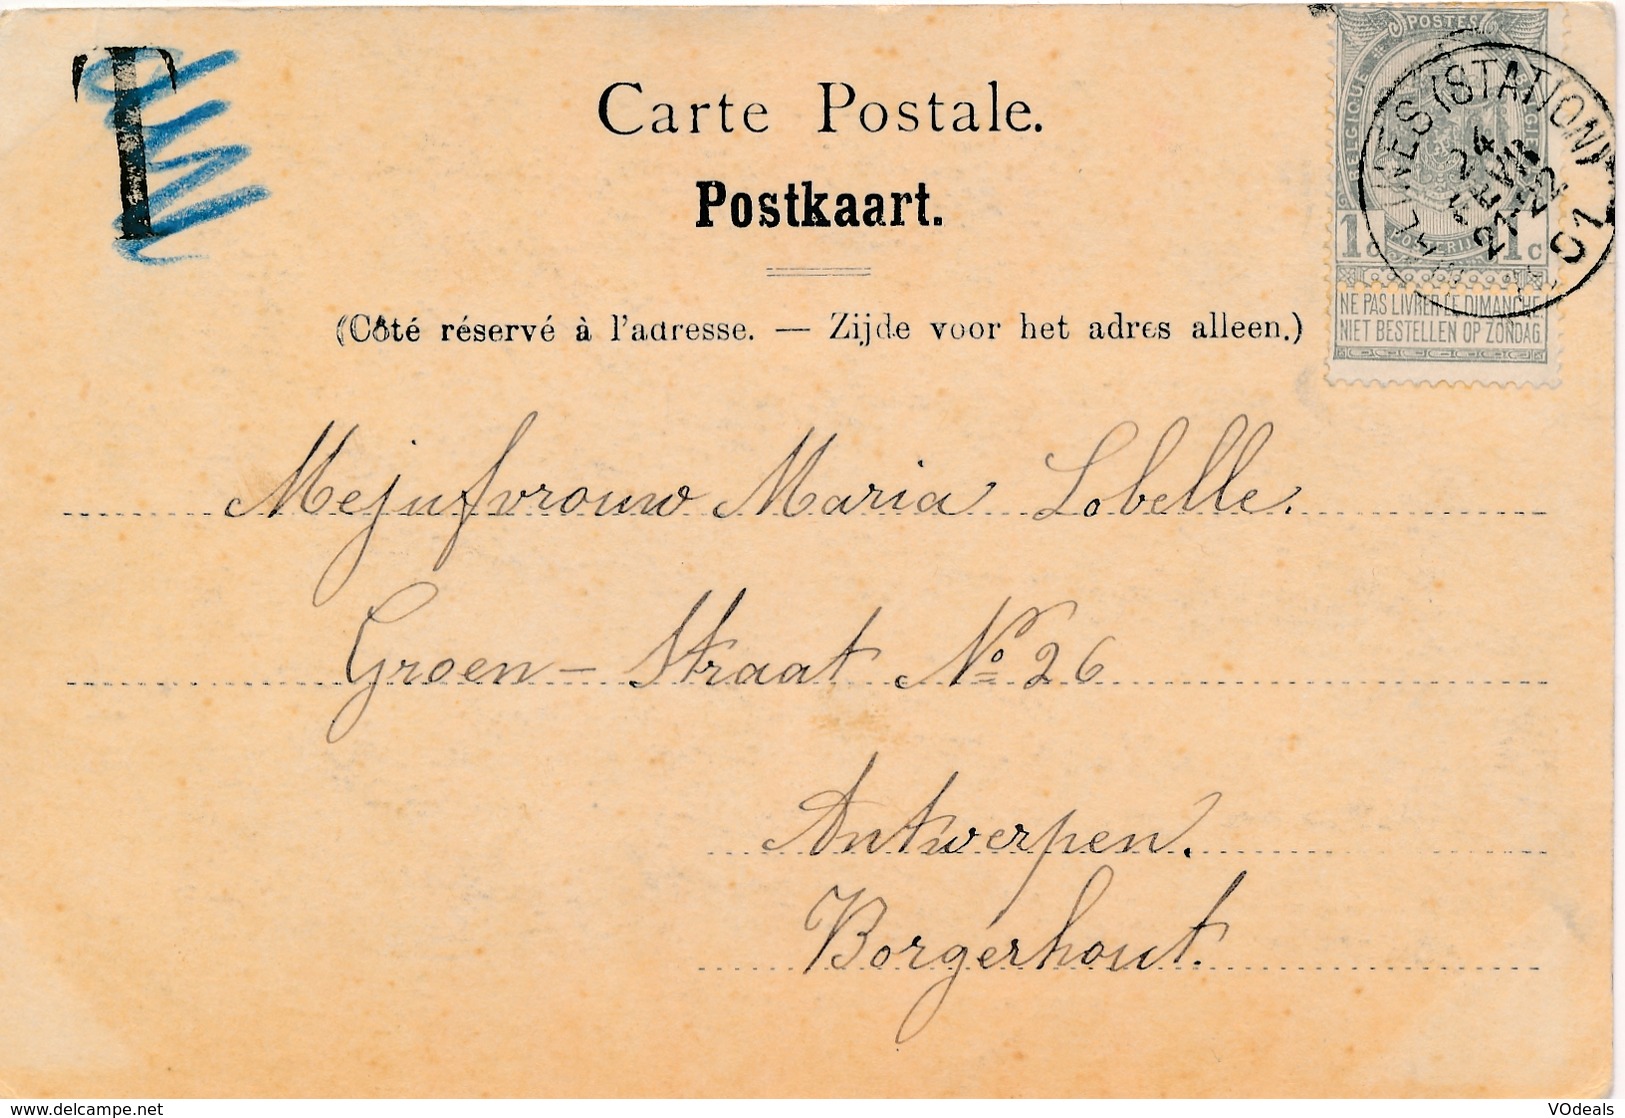 T
Carte Postale.
Postkaart.
(Côté réservé à l'adresse. — Zijde voor het adres alleen.)
POSTES
BELGIQUE BELGIË
POSTERIJEN
1c 1c
NE PAS LIVRER LE DIMANCHE
NIET BESTELLEN OP ZONDAG.
(STATION)
24
Mejufvrouw Maria Lobelle.
Groen-Straat No 26
Antwerpen.
Borgerhout.
www.delcampe.net
VOdeals